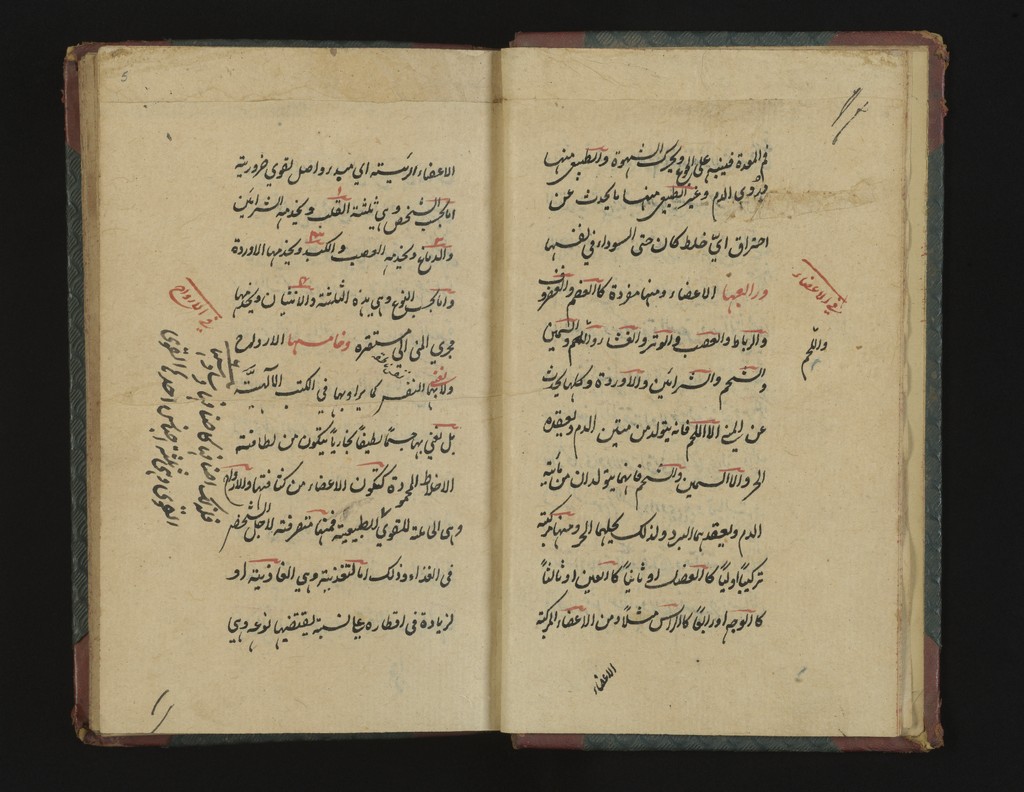 فم المعدة فينبه على الجوع ويحرك الشهوة والطبيعي منها
دردي الدم وغير الطبيعي منها ما يحدث عن
احتراق اي خلط كان حتى السوداء في نفسها
ورابعها الاعضاء ومنها مفردة كالعظم والغضروف
والرباط والعصب والوتر والغشاء واللحم والسمين
والشحم والشرائين والاوردة وكلها يحدث
عن المني الا اللحم فانه يتولد من متين الدم ويعقده
الحر والا السمين والشحم فانهما يتولدان من مائية
الدم ويعقدهما البرد ولذلك يحلهما الحر ومنها مركبة
تركيبا اوليا كالعضل او ثانيا كالعين او ثالثا
كالوجه او رابعا كالراس مثلا ومن الاعضاء المركبة
الاعضاء
في الاعضاء
واللحم
5
الاعضاء الرئيسة اي مبدء واصل لقوي ضرورية
اما بحسب الشخص وهي ثلثة القلب ويخدمه الشرائين
والدماغ ويخدمه العصب والكبد ويخدمها الاوردة
واما بحسب النوع وهي هذه الثلثة والانثيان ويخدمها
مجري المني الي مستقره وخامسها الارواح
ولا نعني بها النفس كما يراد بها في الكتب الالهية
بل نعني بها جسما لطيفا بخاريا يتكون من لطافة
الاخلاط المحمودة كتكون الاعضاء من كثافتها والارواح
وهي الحاملة للقوي الطبيعية فمنها متصرفة لاجل الشخص
في الغذاء وذلك اما لتغذيته وهي الغاذية او
لزيادة في اقطاره علي نسبة يقتضيها نوعه وهي
في الارواح
فلذلك اصنافها كاصنافها وسادسها
القوي وهي ثلثة اجناس احدها القوي